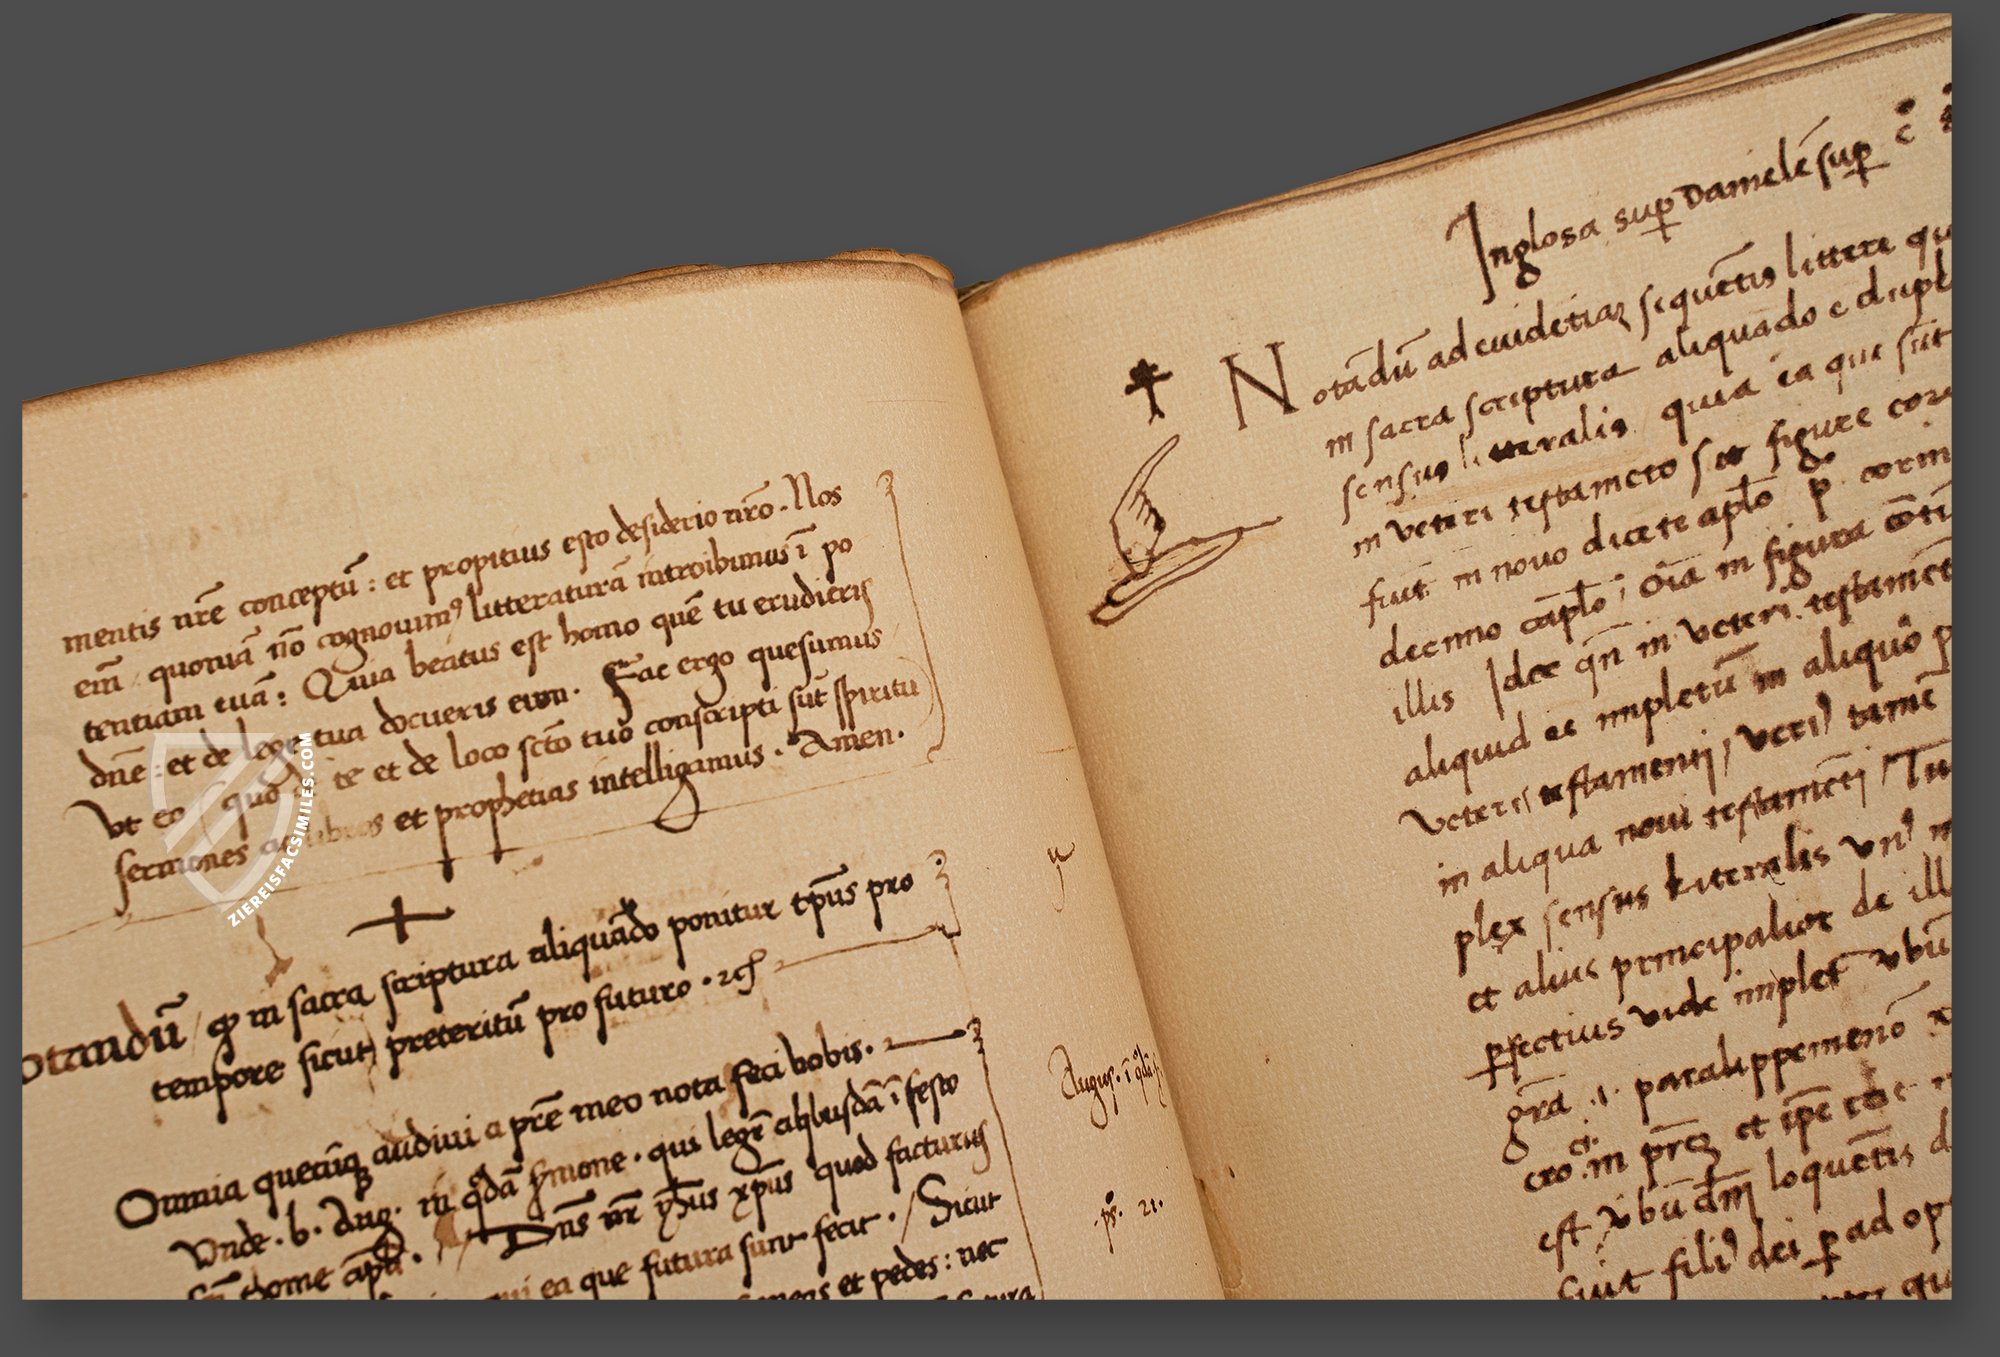 mentis nr̄e conceptū : et propitius esto desiderio nr̄o. Nos
em̄ quoniā nō cognouim⁹ litteraturā introibimus ī po
tentiam tuā : Quia beatus est homo quē tu erudieris
dn̄e : et de lege tua docueris eum. Fac ergo quesumus
Vt eo quo te et de loco sct̄o tuo conscripti sūt spiritu
sermones libros et prophetias intelligamus. Amen.
otandū / qp in sacra scriptura aliquādo ponitur tp̄us pro
tempore sicut preteritū pro futuro. 
Omnia quecūqꝫ audiui a pr̄e meo nota feci vobis.
Vnde. b. Aug. in qdā ẜmone. qui legr̄ ab̄busdā ī festo
thome apl̄i. / Dn̄s nr̄ yh̄us xp̄us quod facturus
ea que futura sunt fecit. / Sicut
et pedes : nec
ZIEREISFACSIMILES.COM
Augus. ī qdā
ps. 21.
Inglosa suꝑ Danielē suꝑ c̊
Notādū ad euidētiaꝫ sequētis littere qu
in sacra scriptura aliquādo e dupl
sensus litteralis quia ea que sūt
in veteri testamēto sūt figure
fuit in nouo dicēte aplō p̊ corin
decimo cāplō ; oīa in figura cōti
illis Idē qn̄ in veteri testamēt
aliquid ē impletū in aliquo p
veteris testamenti / veri⁹ tamē
in aliqua noui testamēti / Tu
plex sensus litteralis vn⁹ m
et alius principalior de ill
ꝑfectius vide implet vbū
gr̄a .1. paralippomenō x
cio in pr̄eꝫ et ip̄e
est vbū dn̄i loquētis d
fuit fili⁹ dei ꝑ adop